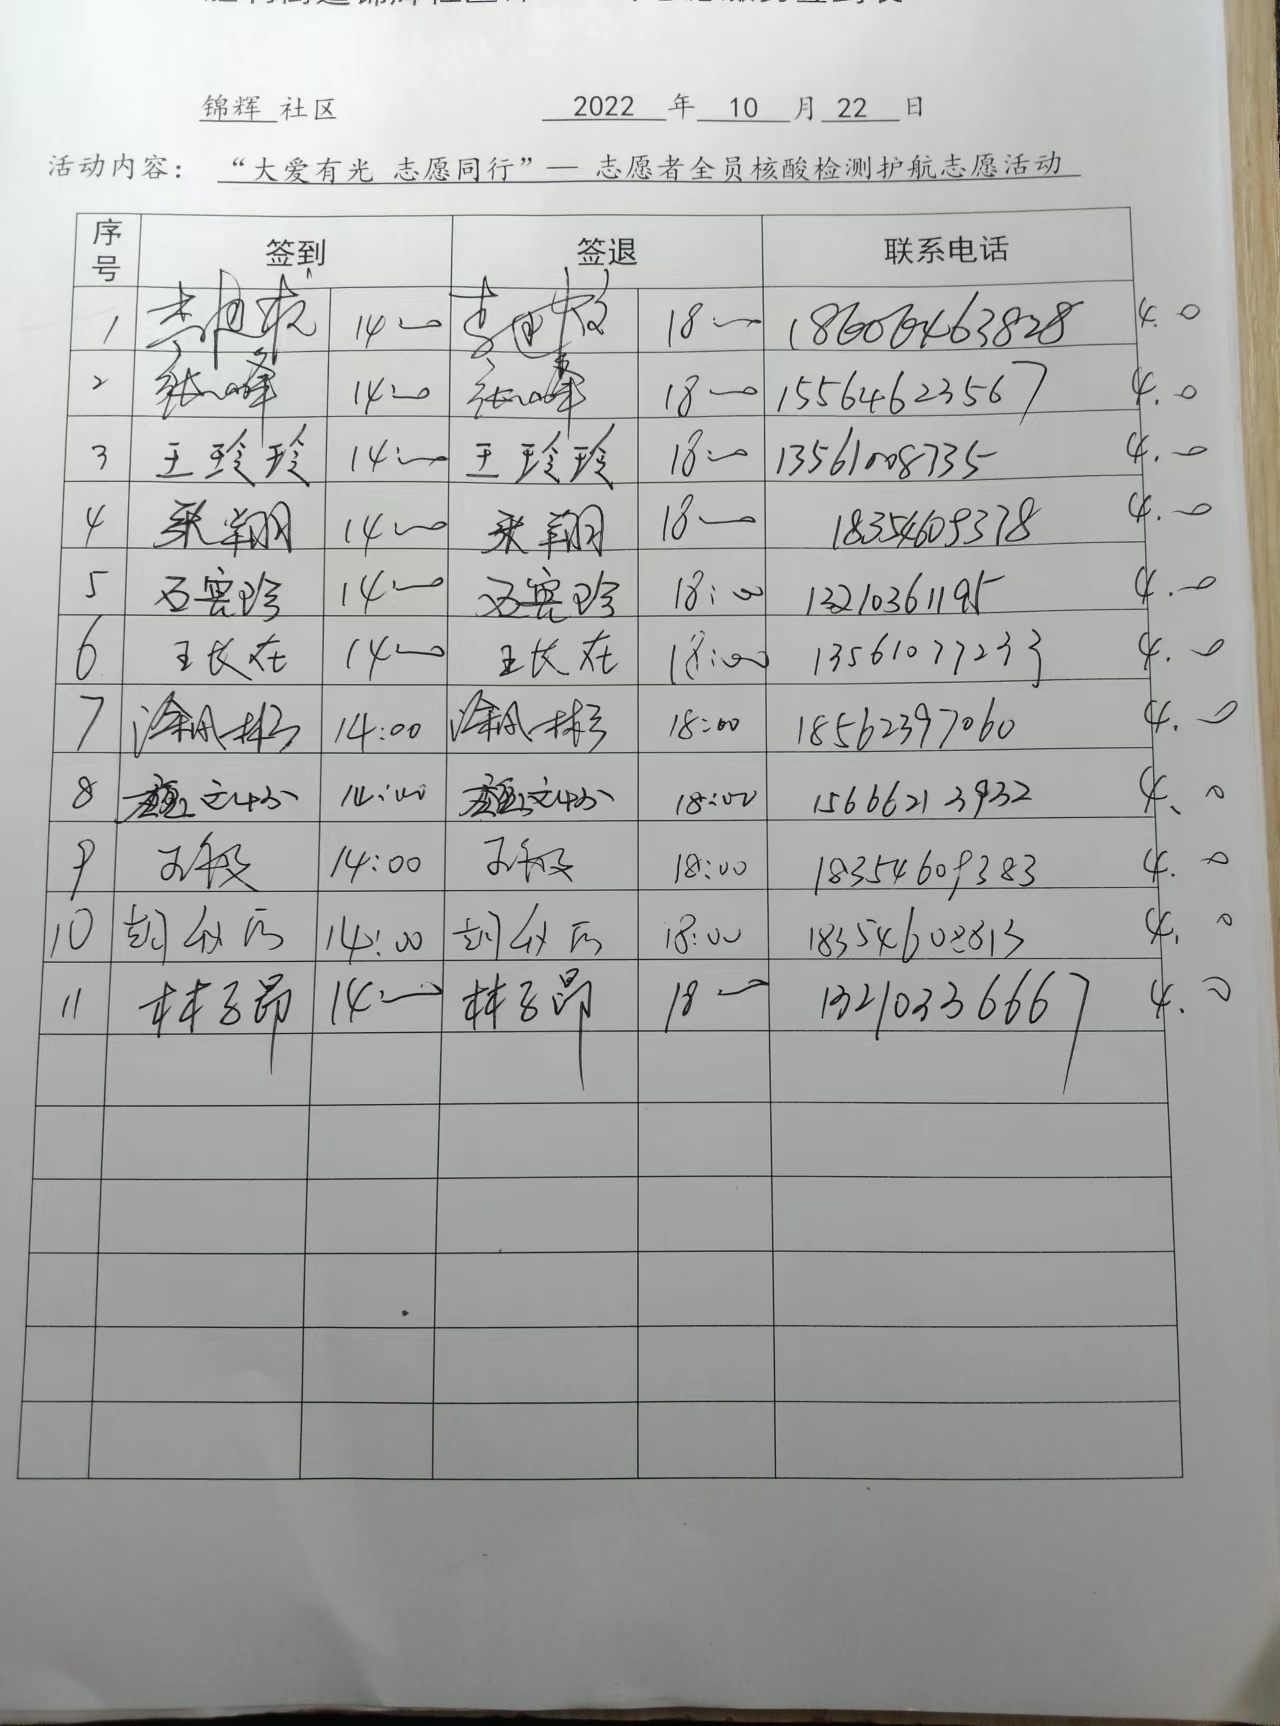 锦辉 社区 2022 年 10 月 22 日
活动内容： “大爱有光 志愿同行”— 志愿者全员核酸检测护航志愿活动
序号 签到 签退 联系电话
1 14:00 18:00 18606463828 4.0
2 张峰 14:00 张峰 18:00 15564623567 4.0
3 王玲玲 14:00 王玲玲 18:00 13561008735 4.0
4 14:00 18:00 18354609378 4.0
5 14:00 18:00 13210361195 4.0
6 王长在 14:00 王长在 18:00 13561077233 4.0
7 14:00 18:00 18562397060 4.0
8 14:00 18:00 15666213932 4.0
9 14:00 18:00 18354609383 4.0
10 14:00 18:00 18354602813 4.0
11 林子昂 14:00 林子昂 18:00 13210336667 4.0